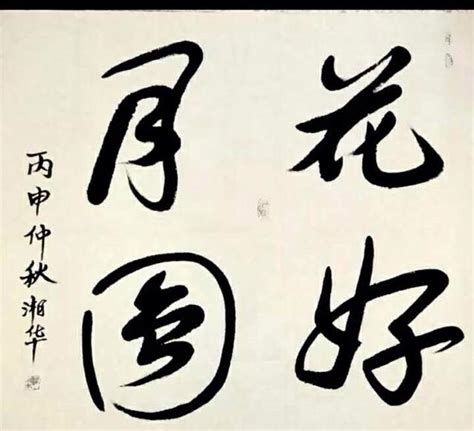 花好
月圆
丙申仲秋湘华